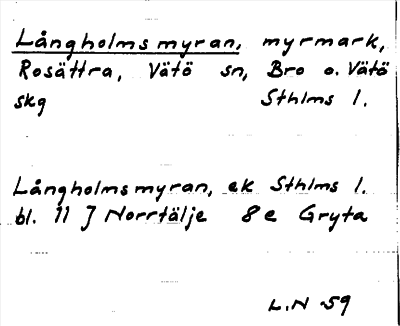 Långholmsmyran, myrmark,
Rosättra, Vätö sn, Bro o. Vätö
skg Sthlms l.
Långholmsmyran, ek Sthlms l.
bl. 11 J Norrtälje 8e Gryta
L.N -59